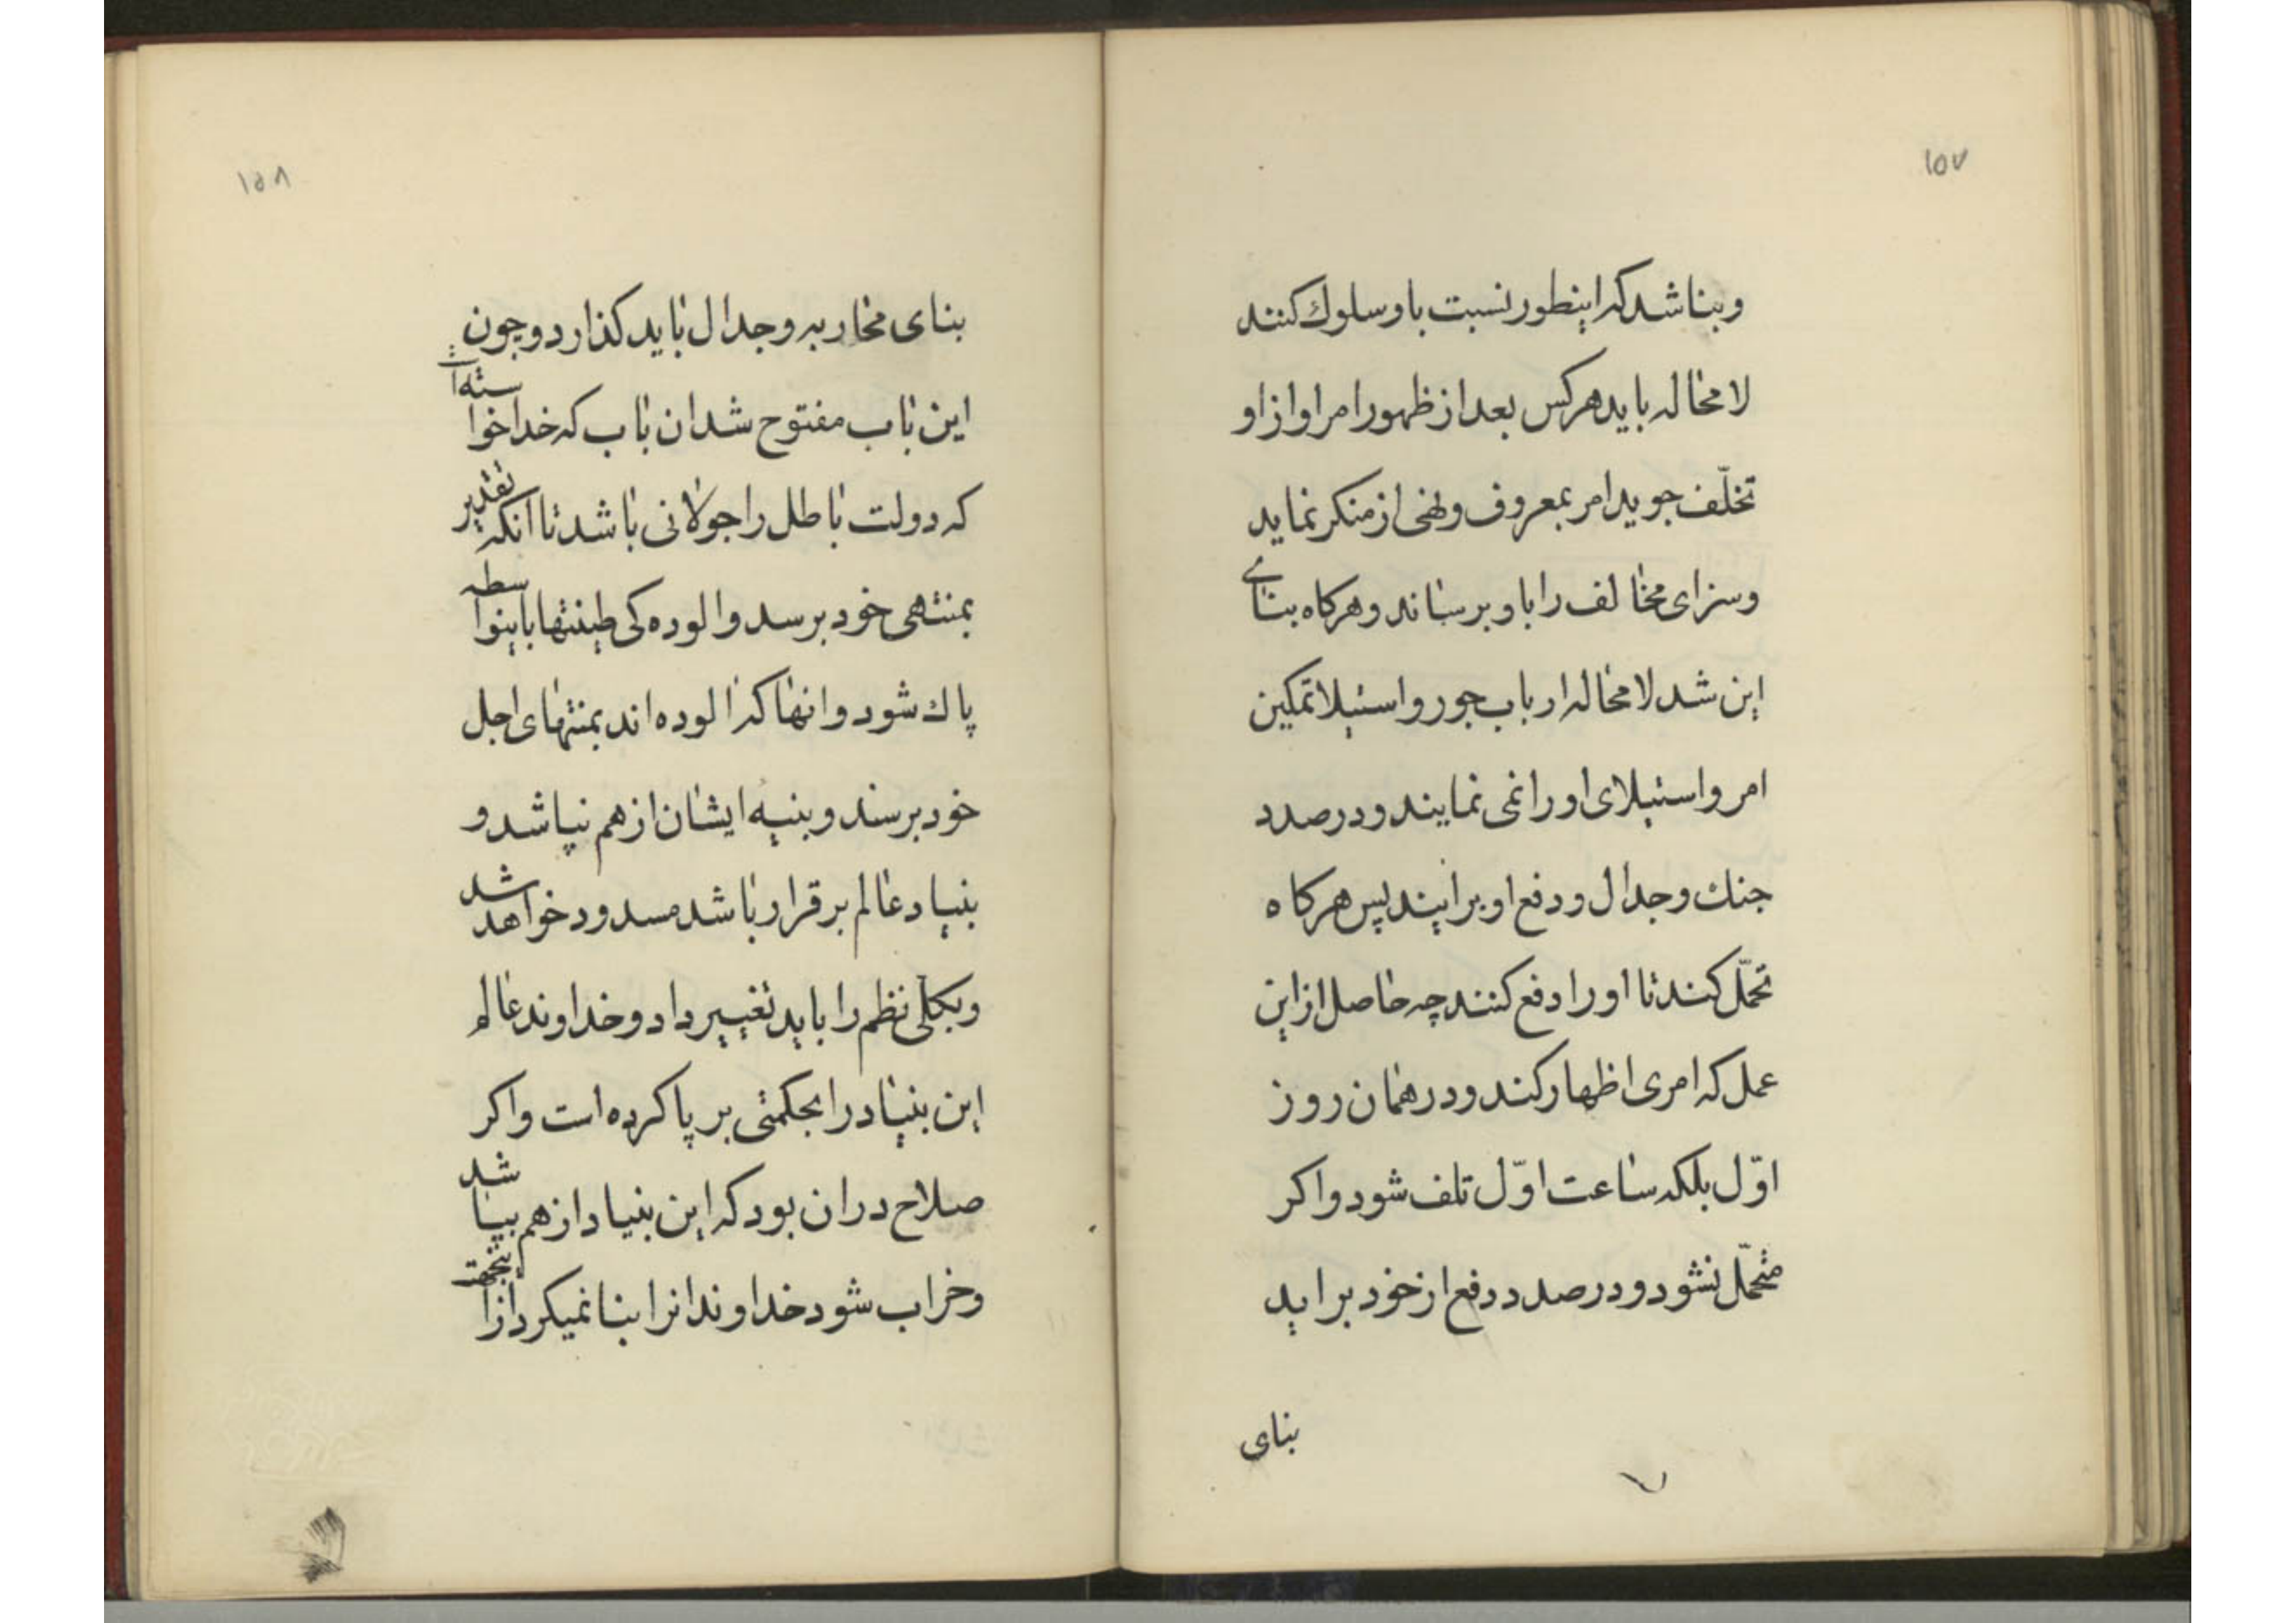 ١٥٧
وبنا شد که اینطور نسبت باو سلوک کنند
لا محاله باید هر کس بعد از ظهور امر او از او
تخلّف جوید امر بمعروف و نهی از منکر نماید
وسزای مخالف را باو برساند و هر کاه بنای
این شد لا محاله ارباب جور و استیلا تمکین
امر و استیلای او را نمی نمایند و در صدد
جنک و جدال و دفع او برایند پس هر کاه
تحمّل کند تا او را دفع کنند چه حاصل از این
عمل که امری اظهار کند و در همان روز
اوّل بلکه ساعت اوّل تلف شود و اکر
متحمّل نشود و در صدد دفع از خود براید
بنای
١٥٨
بنای محاربه و جدال باید کذارد و چون
این باب مفتوح شد ان باب که خدا خواسته است
که دولت باطل را جولانی باشد تا انکه تقدیر
بمنتهی خود برسد و الوده کی طینتها باینواسطه
پاک شود و انها که الوده اند بمنتهای اجل
خود برسند و بنیه ایشان از هم نپاشد و
بنیاد عالم بر قرار باشد مسدود خواهد شد
وبکلّی نظم را باید تغییر داد و خداوند عالم
این بنیاد را بحکمتی بر پا کرده است واکر
صلاح در ان بود که این بنیاد از هم بپاشد
وخراب شود خداوند انرا بنا نمیکرد از اینجهت